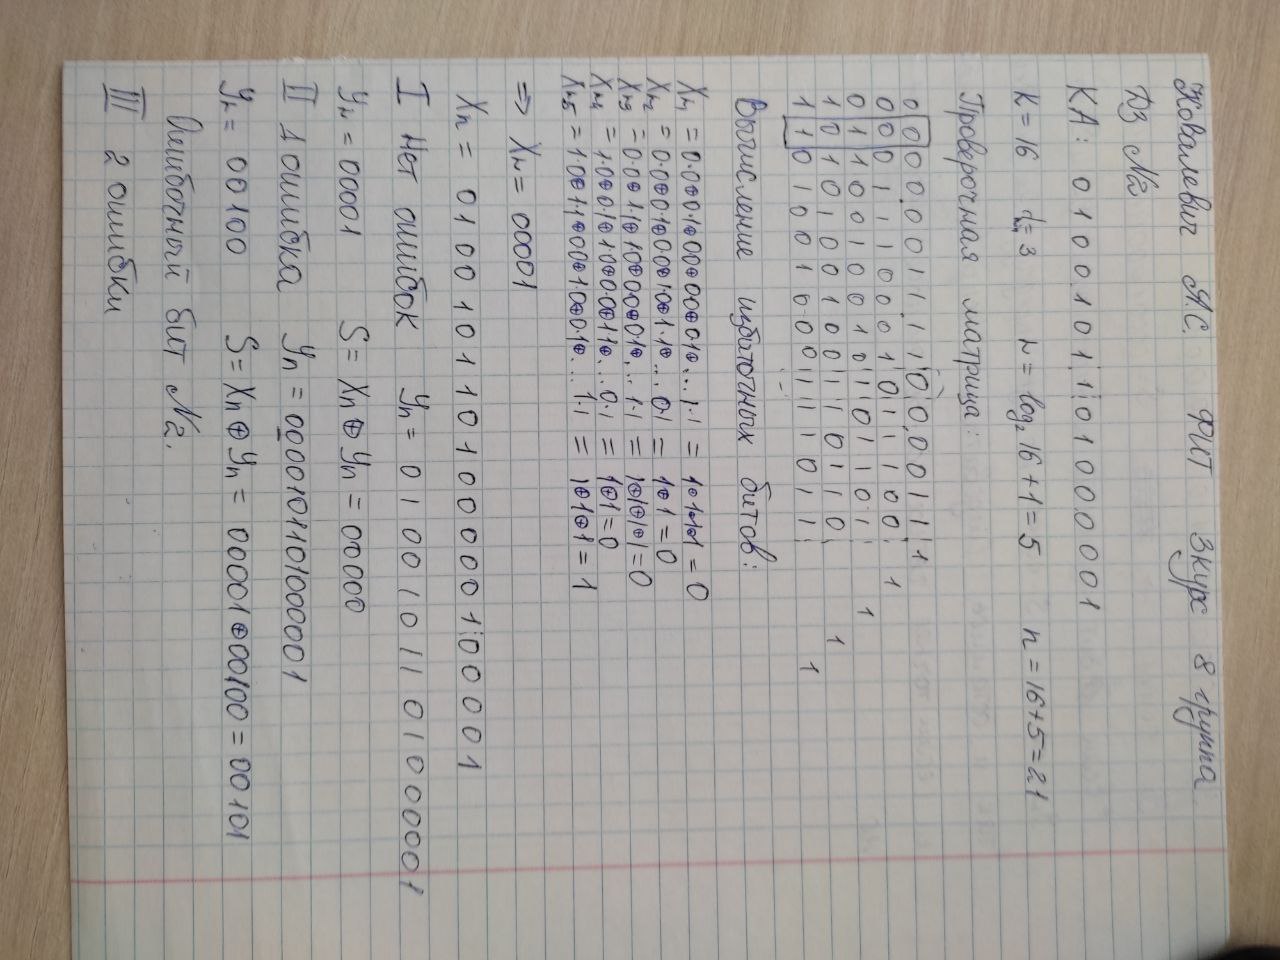 Ковалевич А.С. ФИТ 3 курс 8 группа
ДЗ №2
КА: 0 1 0 0 1 0 1 1 1 0 1 0 0 0 0 0 1
K = 16 = 3 r = log₂ 16 + 1 = 5 n = 16+5 = 21
Проверочная матрица:
0 0 0 0 0 0 1 1 1 1 0 0 0 0 1 1 1
0 0 0 1 1 1 0 0 0 1 0 1 1 1 0 0 1
0 1 1 0 0 1 0 0 1 0 1 1 0 1 1 0 1 1
1 0 1 0 1 0 0 1 0 0 1 1 1 0 1 1 0 1
1 1 0 1 0 0 1 0 0 0 1 1 1 0 1 1 1
Вычисление избыточных битов:
Xr₁ = 0·0⊕0·1⊕0·0⊕0·0⊕0·1⊕...1·1 = 1⊕1⊕1⊕1 = 0
Xr₂ = 0·0⊕0·1⊕0·0⊕1·0⊕1·1⊕... 0·1 = 1⊕1 = 0
Xr₃ = 0·0⊕1·1⊕1·0⊕0·0⊕0·1⊕... 1·1 = 1⊕1⊕1⊕1 = 0
Xr₄ = 1·0⊕0·1⊕1·0⊕0·0⊕1·1⊕...0·1 = 1⊕1 = 0
Xr₅ = 1·0⊕1·1⊕0·0⊕1·0⊕0·1⊕... 1·1 = 1⊕1⊕1 = 1
⇒ Xr = 00001
Xn = 0 1 0 0 1 0 1 1 0 1 0 0 0 0 0 1 0 0 0 0 1
I Нет ошибок Yn = 0 1 0 0 1 0 1 1 0 1 0 0 0 0 0 1
Yr = 00001 S = Xn ⊕ Yn = 00000
II 1 ошибка Yn = 0000101101000001
Yr = 00100 S = Xn ⊕ Yn = 00001 ⊕ 00100 = 00101
Ошибочный бит №2.
III 2 ошибки